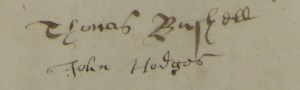 Thomas Bushell
John Hodges